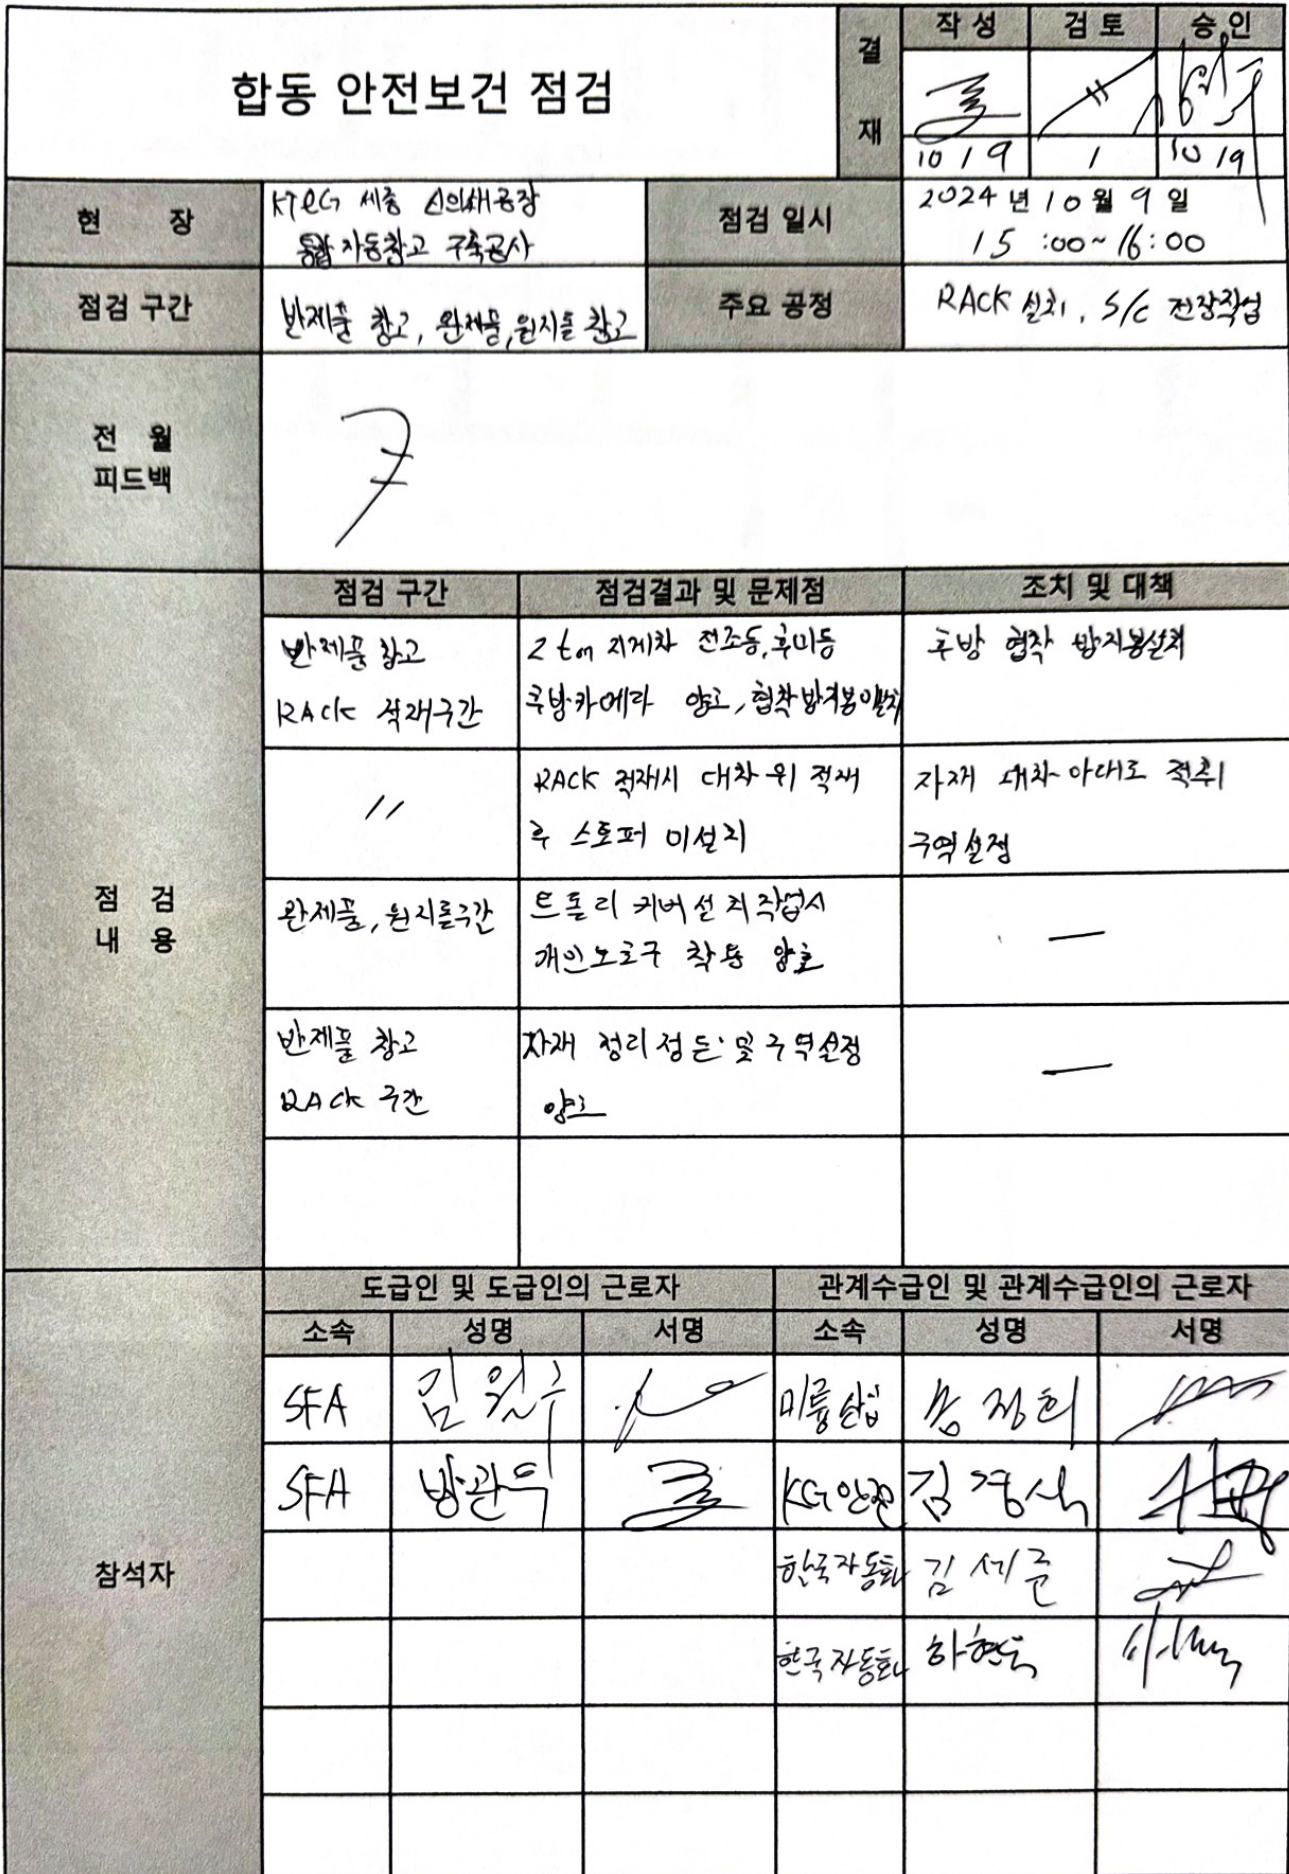 합동 안전보건 점검
결재
작성 검토 승인
10 / 9 / 10 / 9
현 장
KT&G 세종 신인쇄공장
통합 자동창고 구축공사
점검 일시
2024년 10월 9일
15:00~16:00
점검 구간
반제품 창고, 완제품, 원지롤 창고
주요 공정
RACK 설치, S/C 전장작업
전 월
피드백
점 검
내 용
점검 구간 점검결과 및 문제점 조치 및 대책
반제품 창고
RACK 적재구간
2 ton 지게차 전조등, 후미등
후방카메라 양호, 협착방지봉 미설치
후방 협착 방지봉설치
〃
RACK 적재시 대차 위 적재
후 스토퍼 미설치
자재 대차 아래로 적치
구역설정
완제품, 원지롤구간
트롤리 커버설치작업시
개인보호구 착용 양호
—
반제품 창고
RACK 구간
자재 정리정돈 및 구역설정
양호
—
참석자
도급인 및 도급인의 근로자 관계수급인 및 관계수급인의 근로자
소속 성명 서명 소속 성명 서명
SFA 김원우 미륭산업 송정희
SFA 방관덕 KG안전 김경식
한국자동화 김세준
한국자동화 하현욱